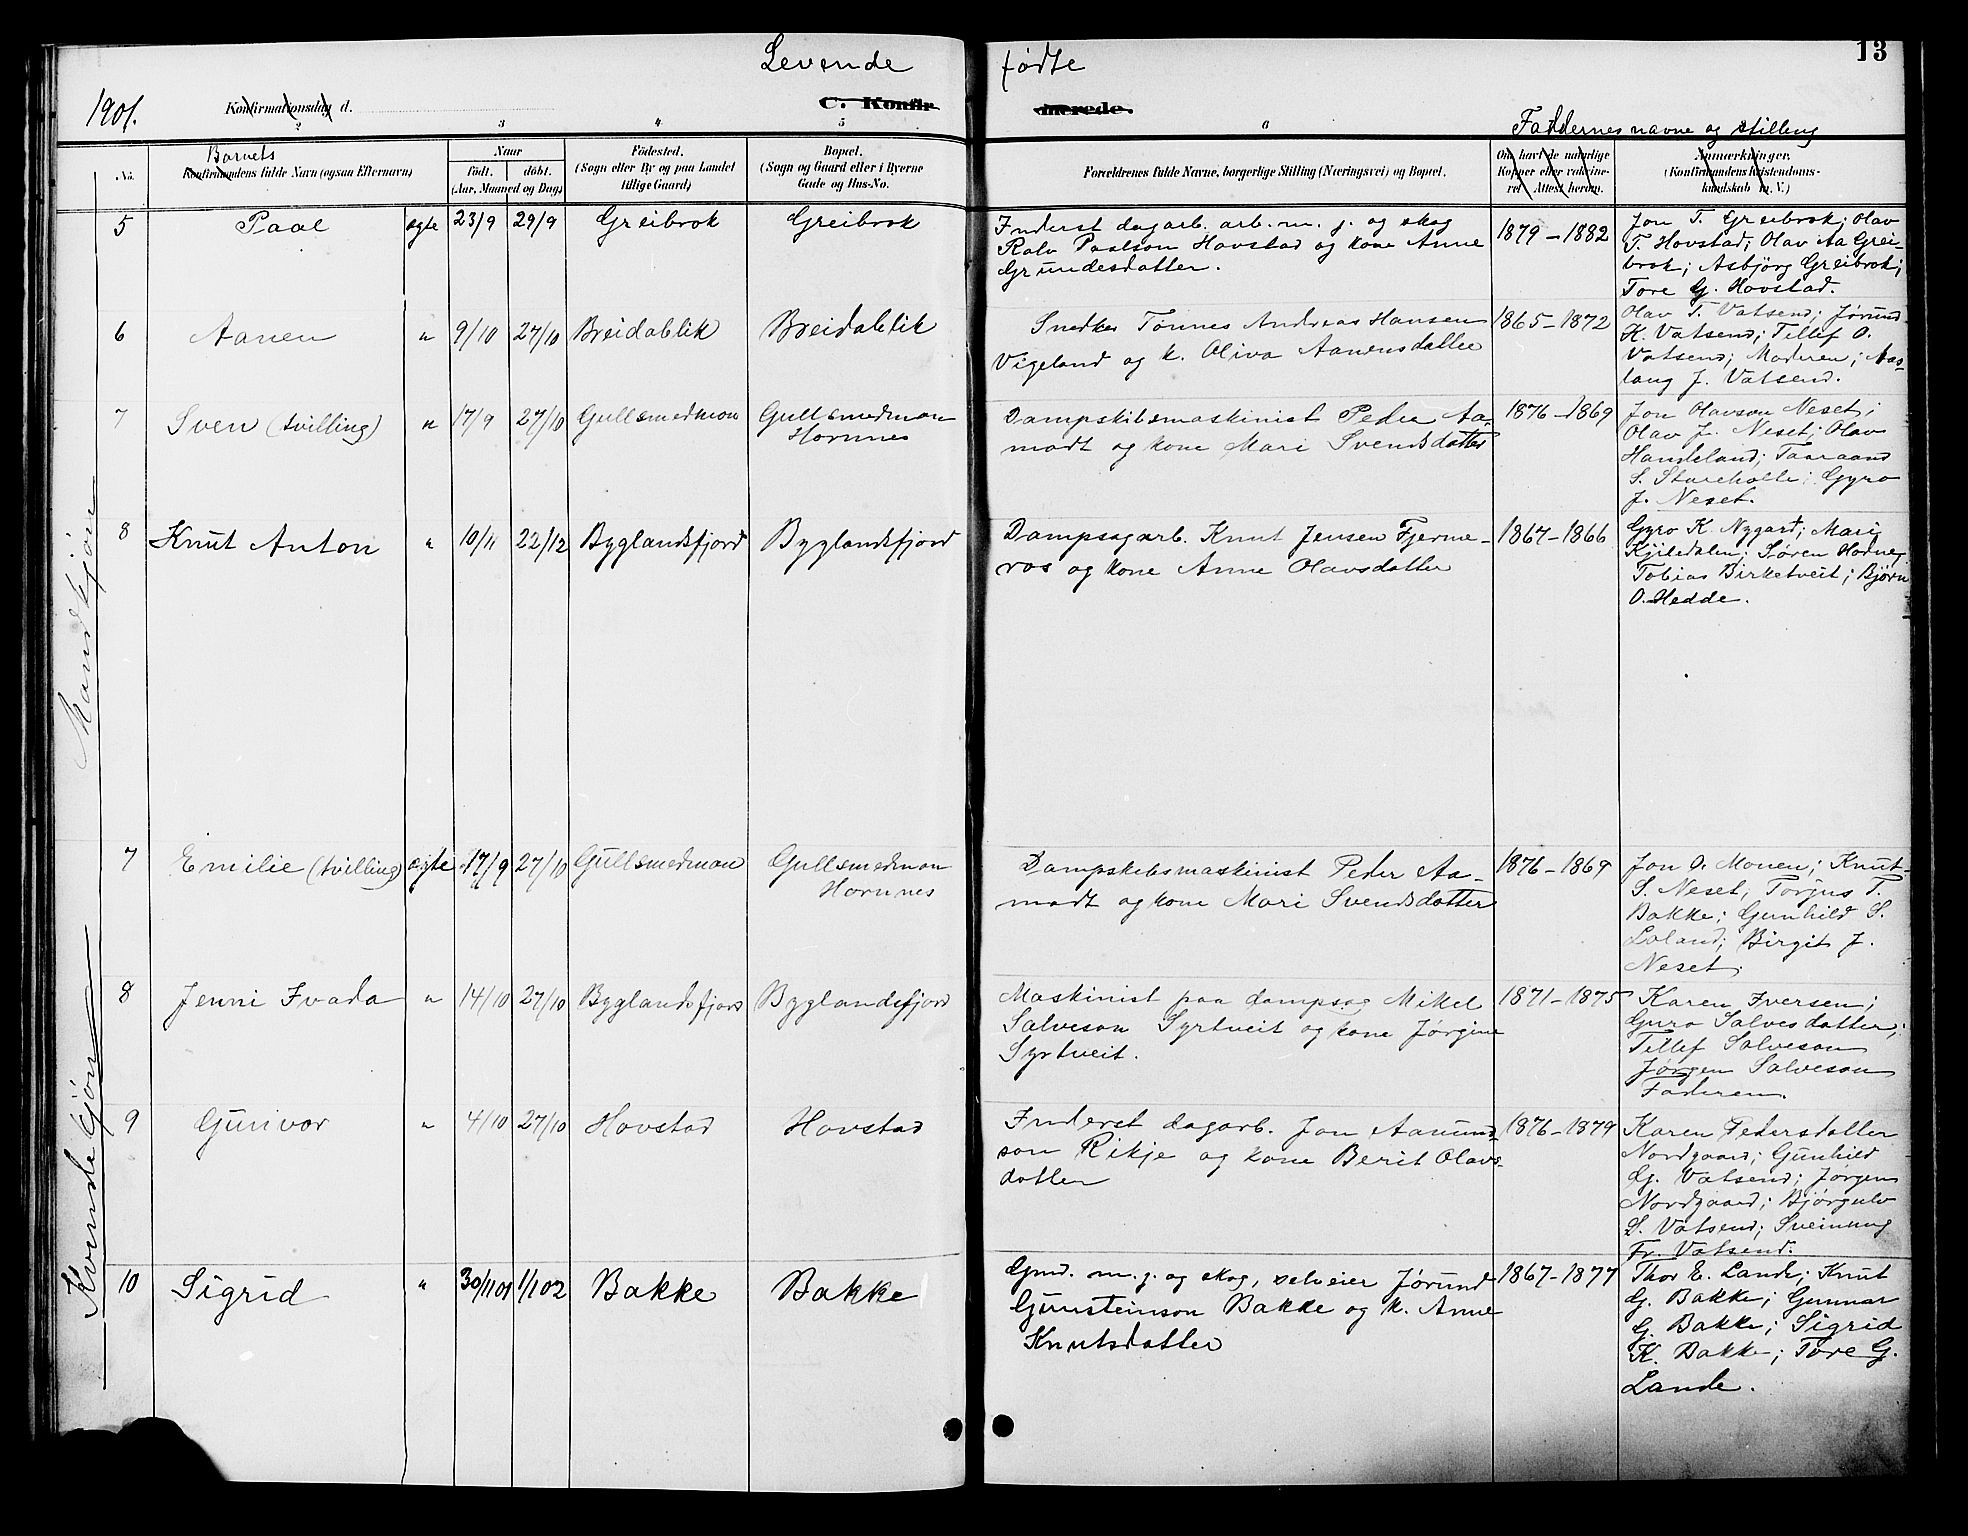 Levende
fødte
13
1901.
Konfirmationsdag d.
C. Konfir
merede.
Faddernes navne og stilling
2
3
4
5
6
Barnets
No.
Konfirmandens fulde Navn (ogsaa Efternavn)
Naar
Født.
døbt.
(Aar, Maaned og Dag)
Fødested.
(Sogn eller By og paa Landet
tillige Gaard)
Bopæl.
(Sogn og Gaard eller i Byerne
Gade og Hus-No.
Forældrenes fulde Navne, borgerlige Stilling (Næringsvei) og Bopæl.
Om havt de naturlige
Kopper eller vakcine-
ret Attest herom.
Anmærkninger.
(Konfirmandens Kristendoms-
kundskab m. V.)
Mandkjøn
5 Paal ægte 23/9 29/9 Greibrok Greibrok
Inderst dagarb. arb. m. j. og skog
Ralv Paalson Hovstad og kone Anne
Grundesdatter.
1879 – 1882
Jon T. Greibrok; Olav
T. Hovstad; Olav Aa Grei-
brok; Asbjörg Greibrok;
Tore G. Hovstad.
6 Aanen " 9/10 27/10 Breidablik Breidablik
Snedker Tønnes Andreas Hansen
Vigeland og k. Oliva Aanensdatter
1865 – 1872
Olav T. Vatsend; Jørund
K. Vatsend; Tellef O.
Vatsend; Moderen; Aas-
laug J. Vatsend.
7 Sven (tvilling) " 17/9 27/10 Gullsmedmon Gullsmedmon
Hornnes
Dampskibsmaskinist Peder Aa-
modt og kone Mari Svendsdatter
1876 – 1869
Jon Olavson Neset;
Olav J. Neset; Olav
Handeland; Taaraand
S. Storeholle; Gyro
J. Neset.
8 Knut Anton " 10/11 22/12 Byglandsfjord Byglandsfjord
Dampsagarb. Knut Jensen Fjerme-
ros og kone Anne Olavsdatter
1867 – 1866
Gyro K. Nygard; Mari
Kjiledalen; Søren Hodne;
Tobias Birketveit; Bjørn
O. Hedde.
Kvendekjøn
7 Emilie (tvilling) ægte 17/9 27/10 Gullsmedmon Gullsmedmon
Hornnes
Dampskibsmaskinist Peder Aa-
modt og kone Mari Svendsdatter
1876 – 1869
Jon O. Monen; Knut
S. Neset; Torjus T.
Bakke; Gunhild S.
Loland; Birgit J.
Neset.
8 Jenni Ivada " 14/10 27/10 Byglandsfjord Byglandsfjord
Maskinist paa dampsag Mikel
Salveson Syrtveit og kone Jørgine
Syrtveit.
1871 – 1875
Karen Iversen;
Guro Salvesdatter;
Tellef Salveson
Jørgen Salveson
Faderen.
9 Gunvor " 4/10 27/10 Hovstad Hovstad
Inderst dagarb. Jon Aanund-
son Rikje og kone Berit Olavs-
datter
1876 – 1879
Karen Pedersdatter
Nordgaard; Gunhild
G. Vatsend; Jørgen
Nordgaard; Bjørgulv
S. Vatsend; Sveinung
Fr. Vatsend.
10 Sigrid " 30/11 01 1/1 02 Bakke Bakke
Gmd. m. j. og skog, selveier Jørund
Gunsteinson Bakke og k. Anne
Knutsdatter
1867 – 1877
Thor E. Lande; Knut
G. Bakke; Gunnar
G. Bakke; Sigrid
K. Bakke; Tore G.
Lande.